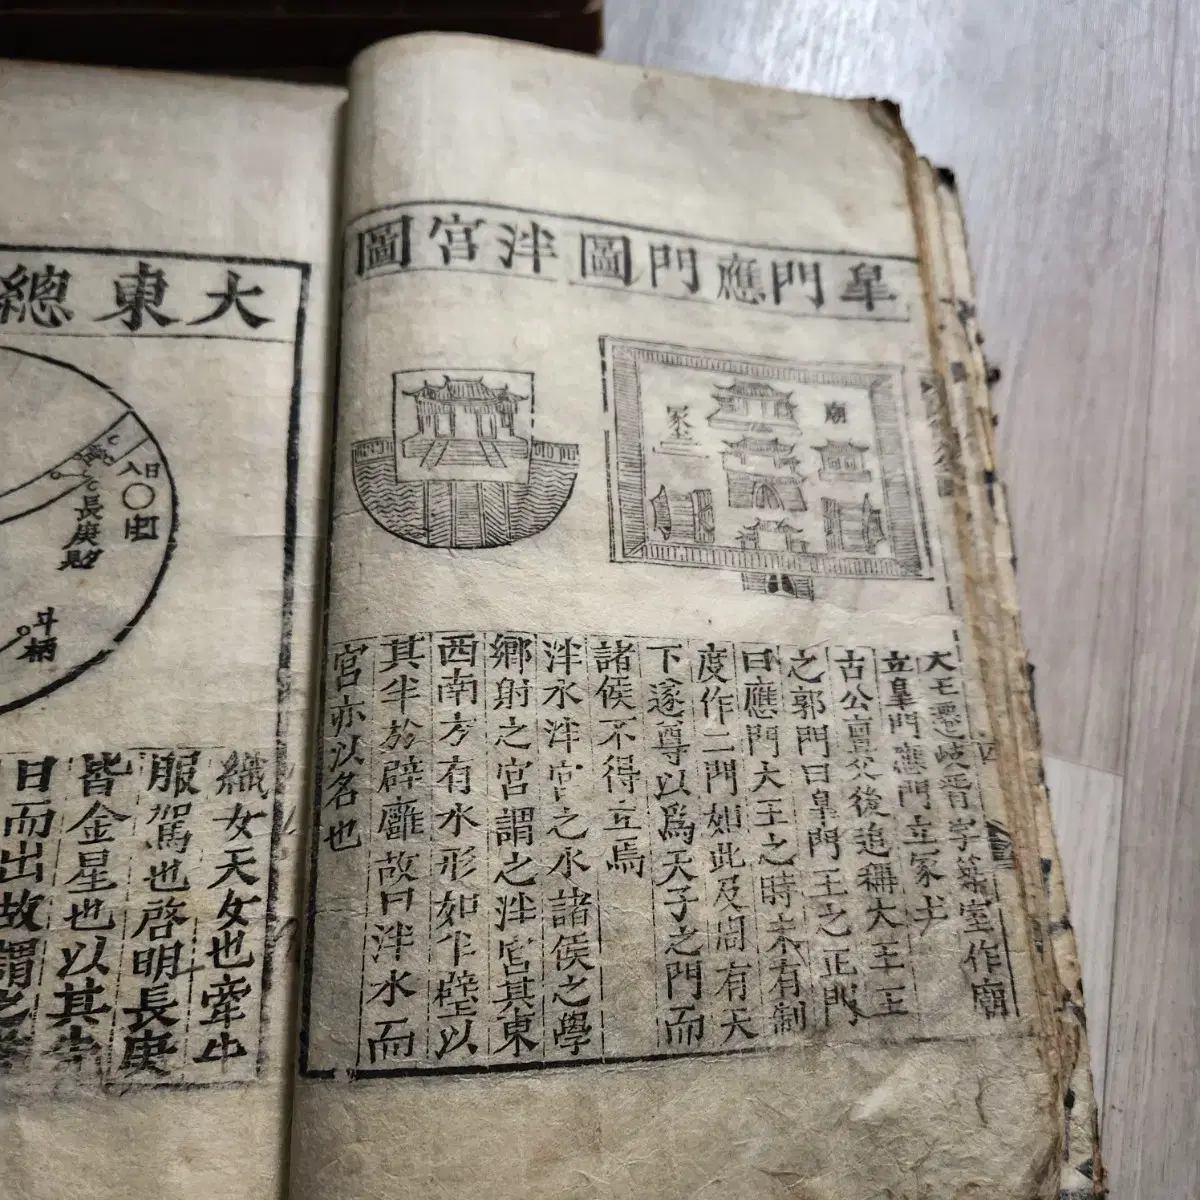 皐門應門圖
泮宮圖
廟
冢土
大王遷岐胥宇築室作廟
立皐門應門立冢土
古公亶父後追稱大王王
之郭門曰皐門王之正門
曰應門大王之時未有制
度作二門如此及周有天
下遂尊以爲天子之門而
諸侯不得立焉
泮水泮宮之水諸侯之學
鄉射之宮謂之泮宮其東
西南方有水形如半璧以
其半於辟廱故曰泮水而
宮亦以名也
大東總
日入
長庚
斗柄
織女天女也牽牛
服駕也啓明長庚
皆金星也以其先
日而出故謂之